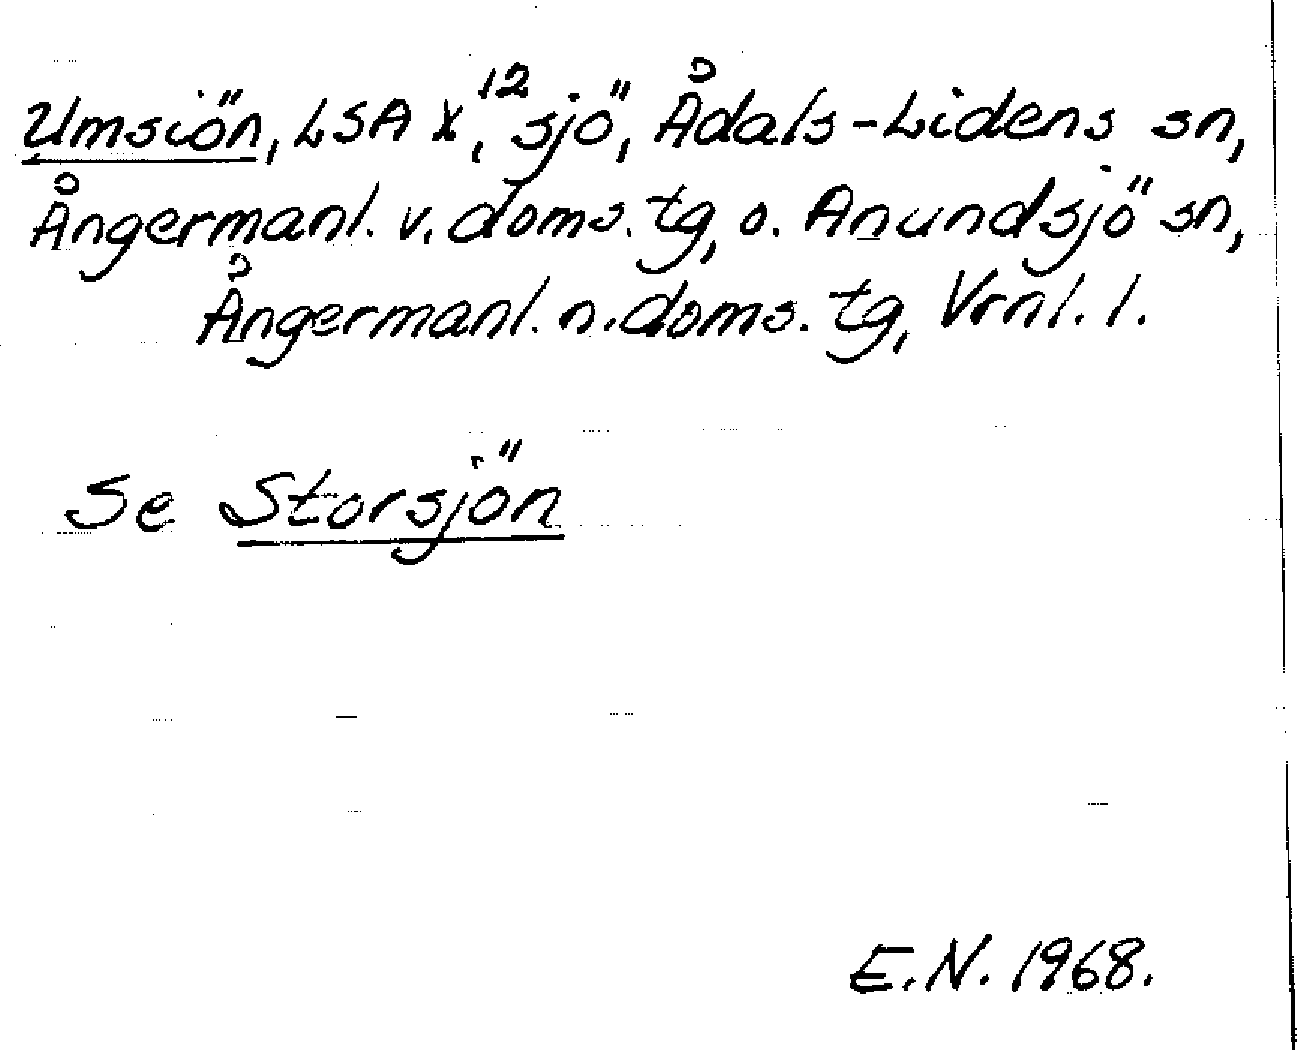 Umsiön, LSA X, 12 sjö, Ådals-Lidens sn,
Ångermanl. v. doms. tg, o. Anundsjö sn,
Ångermanl. n. doms. tg, Vrnl. l.
Se Storsjön
E.N. 1968.